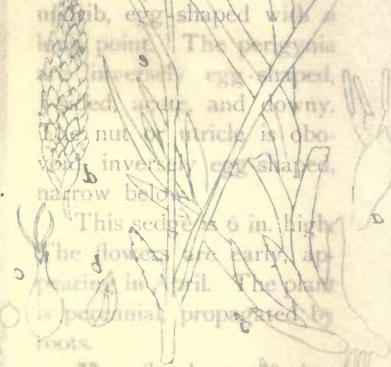 midrib, egg-shaped with a
long point. The perigynia
are inversely egg-shaped,
beaded, acute, and downy.
The nut or utricle is obo-
void, inversely egg-shaped,
narrow below.
This sedge is 6 in. high.
The flowers are early, ap-
pearing in April. The plant
is perennial, propagated by
roots.
e
d
c
b
a
g